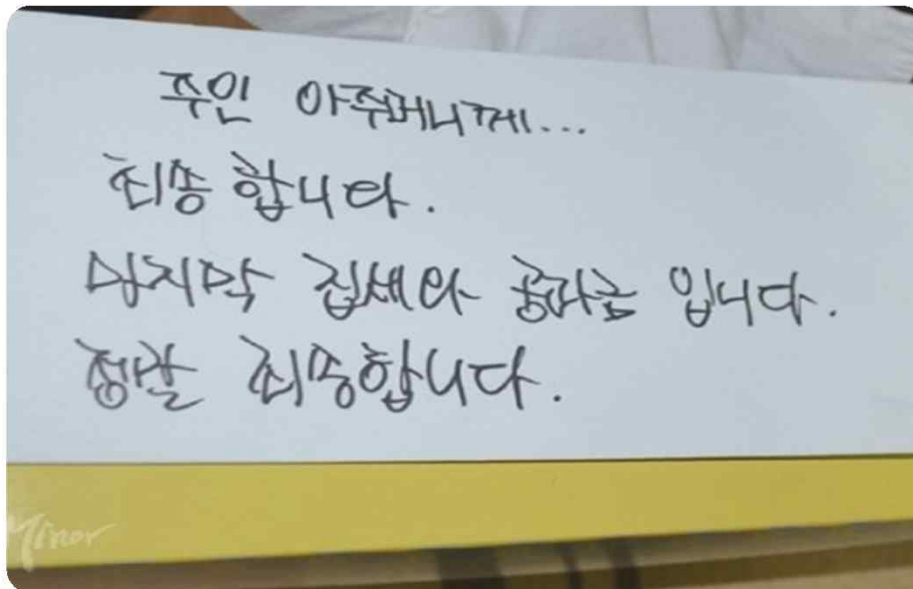 주인 아주머니께...
죄송합니다.
마지막 집세와 공과금 입니다.
정말 죄송합니다.
Minor